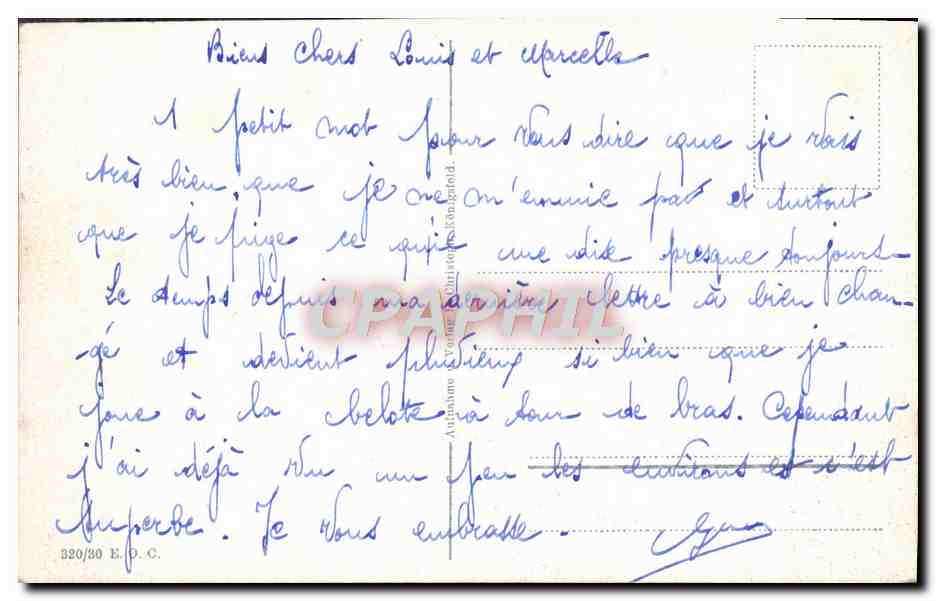 Biens chers Louis et Marcelle
1 petit mot pour vous dire que je vais
très bien, que je ne m'ennuie pas et surtout
que je pige ce qu'il me dise presque toujours.
Le temps depuis ma dernière lettre à bien chan-
-gé et devient pluvieux si bien que je
joue à la belote à tour de bras. Cependant
j'ai déjà vu un peu les environs et c'est
superbe. Je vous embrasse.
320/30 E. O. C.
Aufnahme Verlag Christoph Königsfeld.
CPAPHIL